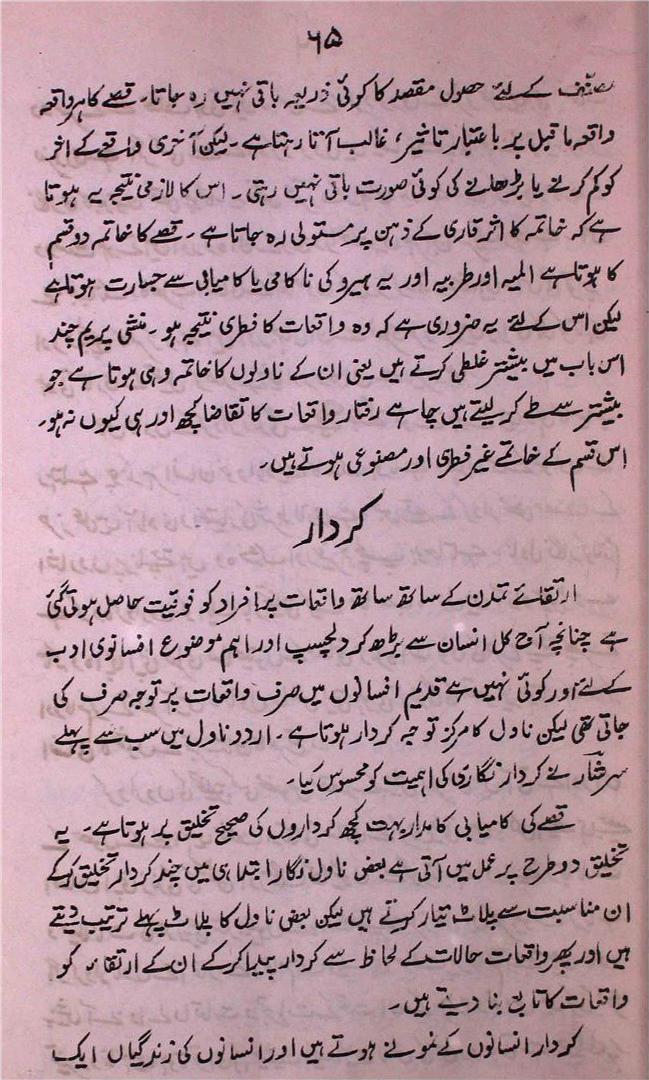 ۶۵
مصنف کے لئے حصول مقصد کا کوئی ذریعہ باقی نہیں رہ جاتا۔ قصے کا ہر واقعہ
واقعہ ماقبل پر باعتبار تاثیر، غالب آتا رہتا ہے۔ لیکن آخری واقعے کے اثر
کو کم کرنے یا بڑھانے کی کوئی صورت باقی نہیں رہتی۔ اس کا لازمی نتیجہ یہ ہوتا
ہے کہ خاتمہ کا اثر قاری کے ذہن پر مستولی رہ جاتا ہے۔ قصے کا خاتمہ دو قسم
کا ہوتا ہے المیہ اور طربیہ اور یہ ہیرو کی ناکامی یا کامیابی سے عبارت ہوتا ہے
لیکن اس کے لئے یہ ضروری ہے کہ وہ واقعات کا فطری نتیجہ ہو۔ منشی پریم چند
اس باب میں بیشتر غلطی کرتے ہیں یعنی ان کے ناولوں کا خاتمہ وہی ہوتا ہے جو
بیشتر سے طے کر لیتے ہیں چاہے رفتار واقعات کا تقاضا کچھ اور ہی کیوں نہ ہو۔
اس قسم کے خاتمے غیر فطری اور مصنوعی ہوتے ہیں۔
کردار
ارتقائے تمدن کے ساتھ ساتھ واقعات پر افراد کو فوقیت حاصل ہوتی گئی
ہے چنانچہ آج کل انسان سے بڑھ کر دلچسپ اور اہم موضوع افسانوی ادب
کے لئے اور کوئی نہیں ہے قدیم افسانوں میں صرف واقعات پر توجہ صرف کی
جاتی تھی لیکن ناول کا مرکز توجہ کردار ہوتا ہے۔ اردو ناول میں سب سے پہلے
سرشار نے کردار نگاری کی اہمیت کو محسوس کیا۔
قصے کی کامیابی کا مدار بہت کچھ کرداروں کی صحیح تخلیق پر ہوتا ہے۔ یہ
تخلیق دو طرح پر عمل میں آتی ہے بعض ناول نگار ابتدا ہی میں چند کردار تخلیق کرکے
ان مناسبت سے پلاٹ تیار کرتے ہیں لیکن بعض ناول کا پلاٹ پہلے ترتیب دیتے
ہیں اور پھر واقعات حالات کے لحاظ سے کردار پیدا کرکے ان کے ارتقاء کو
واقعات کا تابع بنا دیتے ہیں۔
کردار انسانوں کے نمونے ہوتے ہیں اور انسانوں کی زندگیاں ایک